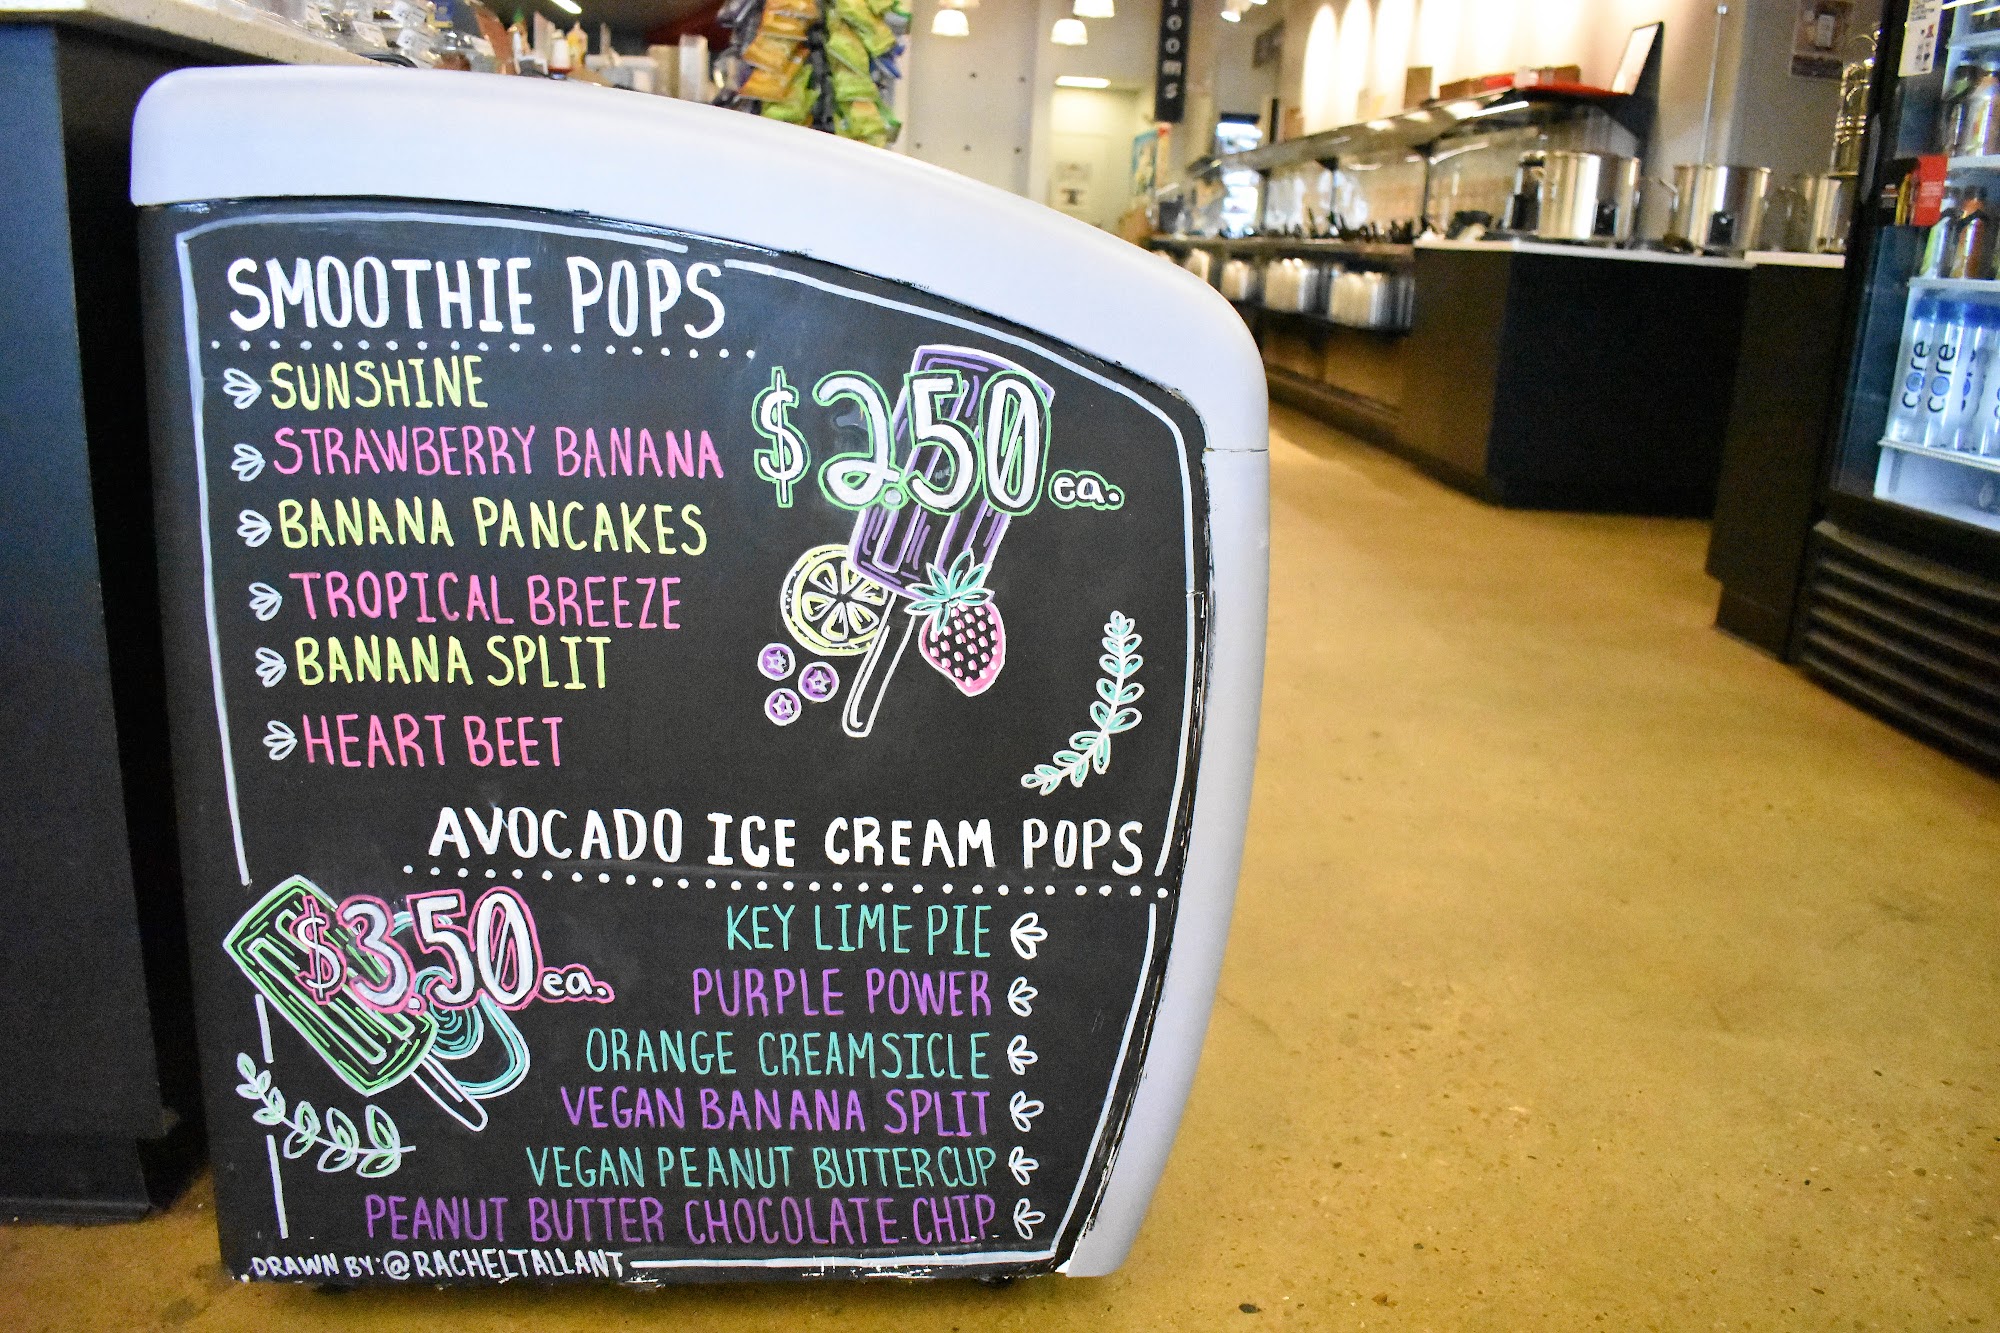 SMOOTHIE POPS
SUNSHINE
STRAWBERRY BANANA
BANANA PANCAKES
TROPICAL BREEZE
BANANA SPLIT
HEART BEET
$2.50 ea.
AVOCADO ICE CREAM POPS
$3.50 ea.
KEY LIME PIE
PURPLE POWER
ORANGE CREAMSICLE
VEGAN BANANA SPLIT
VEGAN PEANUT BUTTERCUP
PEANUT BUTTER CHOCOLATE CHIP
DRAWN BY: @RACHELTALLANT
core
core